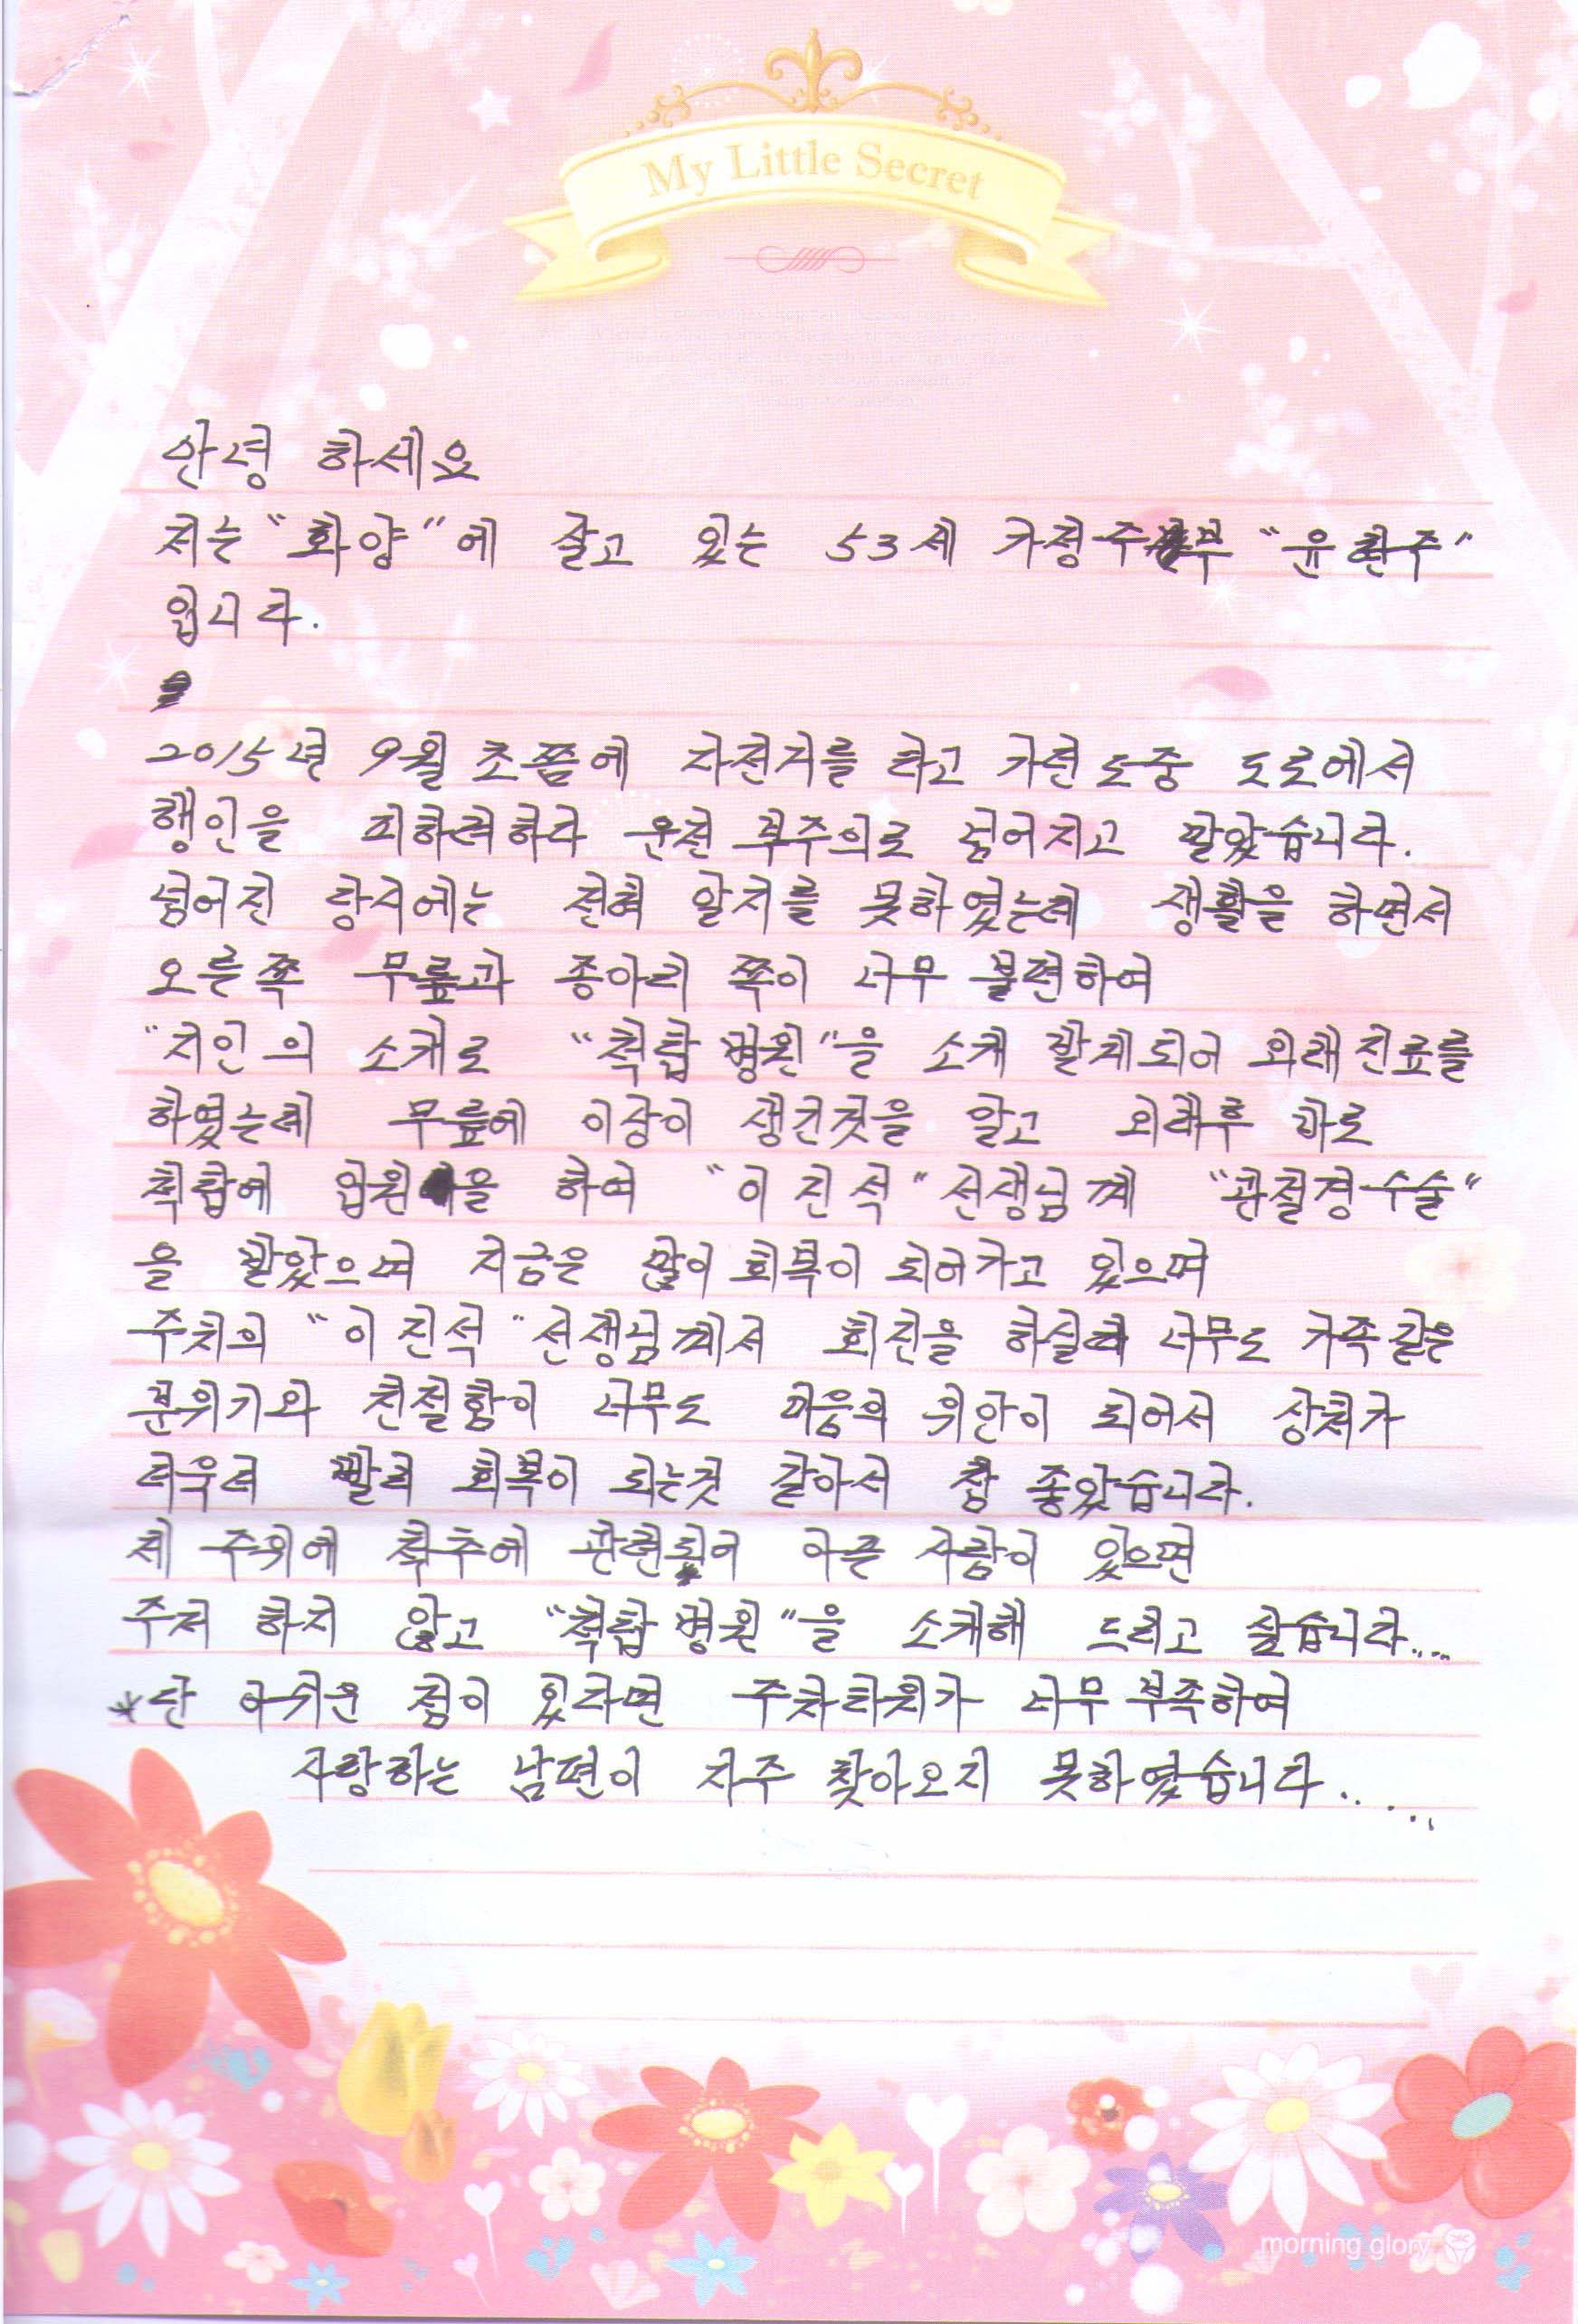 My Little Secret
안녕 하세요
저는 "화양"에 살고 있는 53세 가정주부 "윤현주"
입니다.
2015년 9월 초쯤에 자전거를 타고 가던 도중 도로에서
행인을 피하려하다 운전 부주의로 넘어지고 말았습니다.
넘어진 당시에는 전혀 알지를 못하였는데 생활을 하면서
오른쪽 무릎과 종아리 쪽이 너무 불편하여
"지인의 소개로 "척탑병원"을 소개 받게되어 외래진료를
하였는데 무릎에 이상이 생긴것을 알고 외래후 바로
척탑에 입원을 하여 "이진석"선생님께 "관절경수술"
을 받았으며 지금은 많이 회복이 되어가고 있으며
주치의 "이진석"선생님께서 회진을 하실때 너무도 가족같은
분위기와 친절함이 너무도 마음의 위안이 되어서 상처가
더욱더 빨리 회복이 되는것 같아서 참 좋았습니다.
제 주위에 척추에 관련되어 아픈 사람이 있으면
주저 하지 않고 "척탑병원"을 소개해 드리고 싶습니다....
*단 아쉬운 점이 있다면 주차타워가 너무 부족하여
사랑하는 남편이 자주 찾아오지 못하였습니다.....
morning glory